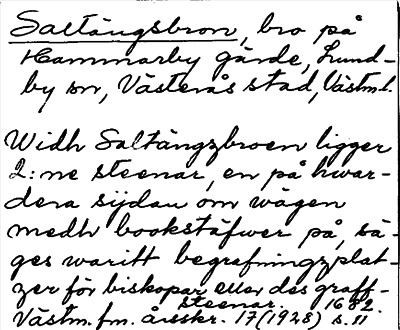 Saltängsbron, bro på
Hammarby gärde, Lund-
by sn, Västerås stad, Västml.
Widh Saltängzbroen ligger
2:ne steenar, en på hwar-
dera sijdan om wägen
medh bookstäfwer på, sä-
ges waritt begrafningzplat-
zer för biskopar eller des graff-
steenar. 1682.
Västm. fm. årsskr. 17 (1928) s. 11